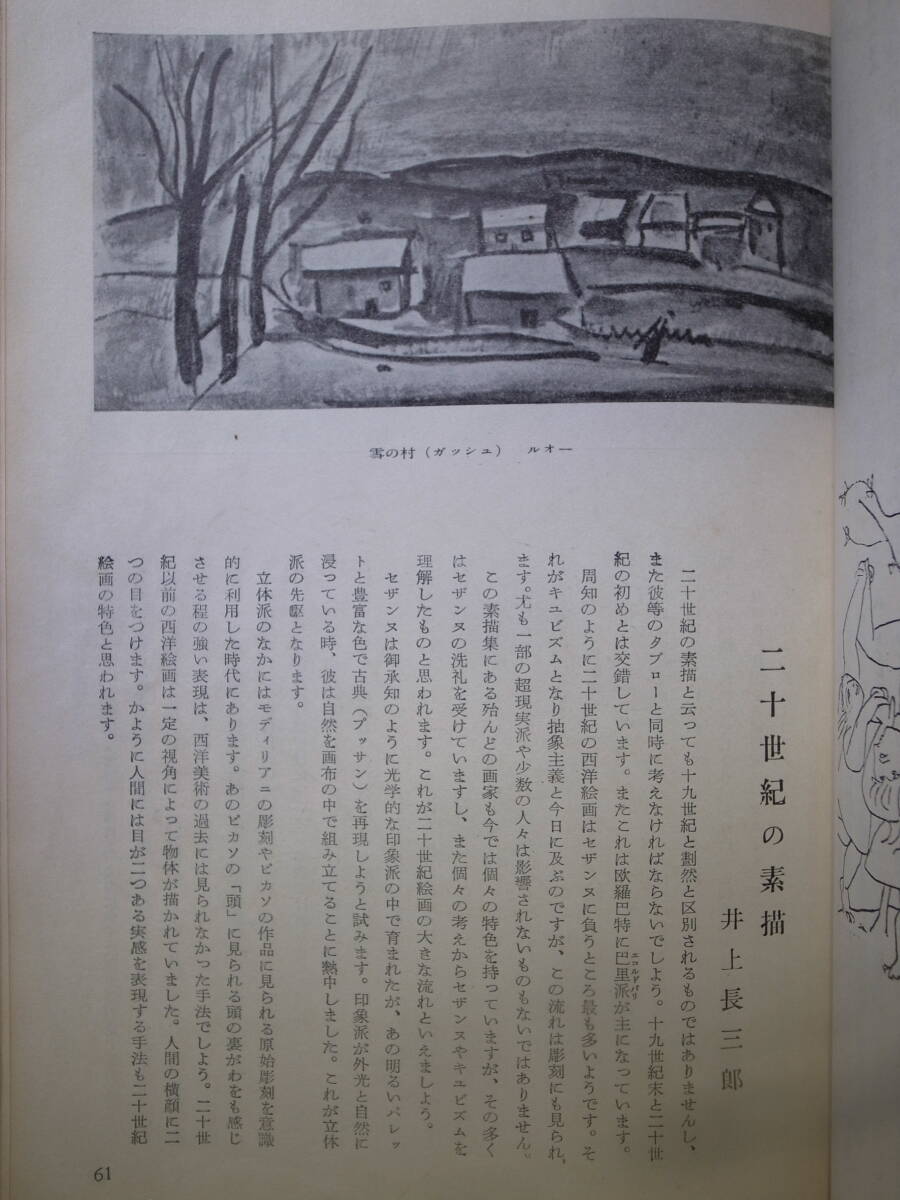 雪の村（ガッシュ）　ルオー
二十世紀の素描
井上長三郎
二十世紀の素描と云っても十九世紀と割然と区別されるものではありませんし、
また彼等のタブローと同時に考えなければならないでしよう。十九世紀末と二十世
紀の初めとは交錯しています。またこれは欧羅巴特に巴里派が主になっています。
エコルドパリ
周知のように二十世紀の西洋絵画はセザンヌに負うところ最も多いようです。そ
れがキュビズムとなり抽象主義と今日に及ぶのですが、この流れは彫刻にも見られ
ます。尤も一部の超現実派や少数の人々は影響されないものもないではありません。
この素描集にある殆んどの画家も今では個々の特色を持っていますが、その多く
はセザンヌの洗礼を受けていますし、また個々の考えからセザンヌやキユビズムを
理解したものと思われます。これが二十世紀絵画の大きな流れといえましよう。
セザンヌは御承知のように光学的な印象派の中で育まれたが、あの明るいパレッ
トと豊富な色で古典（プッサン）を再現しようと試みます。印象派が外光と自然に
浸っている時、彼は自然を画布の中で組み立てることに熱中しました。これが立体
派の先駆となります。
立体派のなかにはモディリアニの彫刻やピカソの作品に見られる原始彫刻を意識
的に利用した時代にあります。あのピカソの「頭」に見られる頭の裏がわをも感じ
させる程の強い表現は、西洋美術の過去には見られなかった手法でしよう。二十世
紀以前の西洋絵画は一定の視角によって物体が描かれていました。人間の横顔に二
つの目をつけます。かように人間には目が二つある実感を表現する手法も二十世紀
絵画の特色と思われます。
61